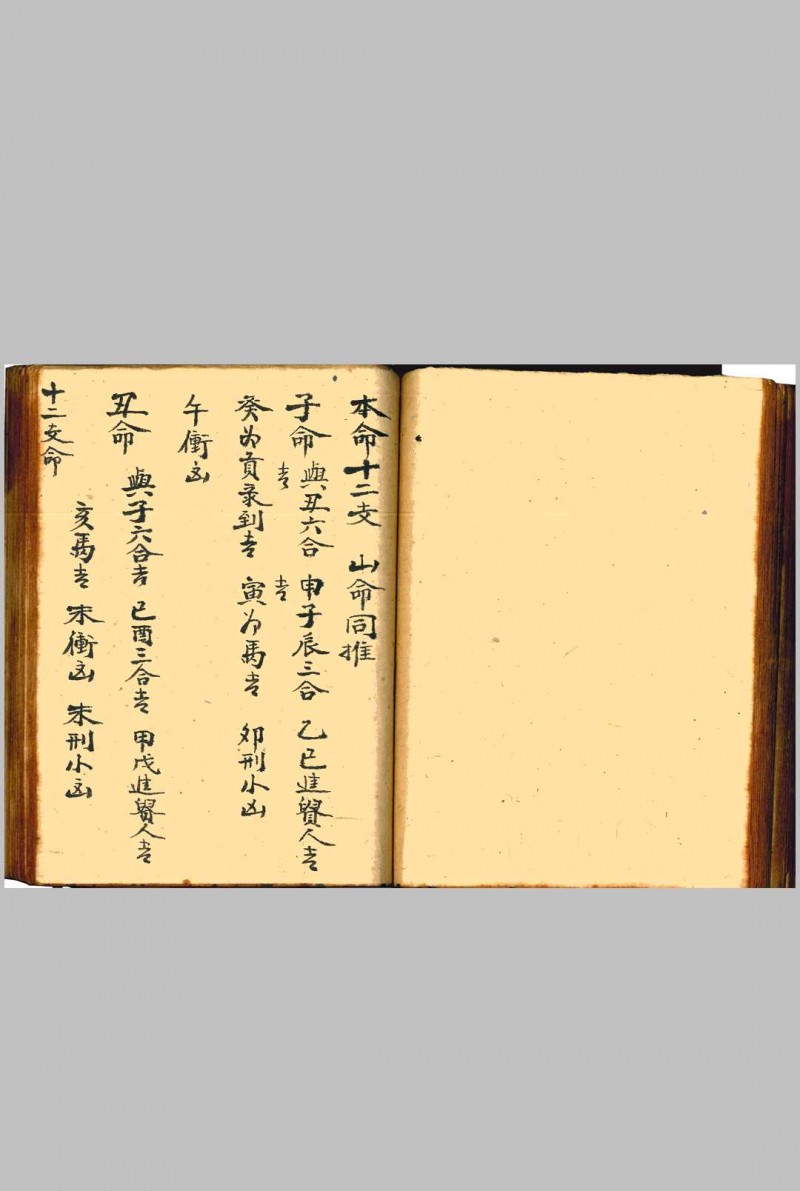 本命十二支　山命同推
子命　與丑六合吉　申子辰三合吉　乙巳進貴人吉
癸為貢彔到吉　寅为馬吉　卯刑小凶
午衝凶
丑命　與子六合吉　巳酉三合吉　甲戊進貴人吉
亥馬吉　未衝凶　未刑小凶
十二支命